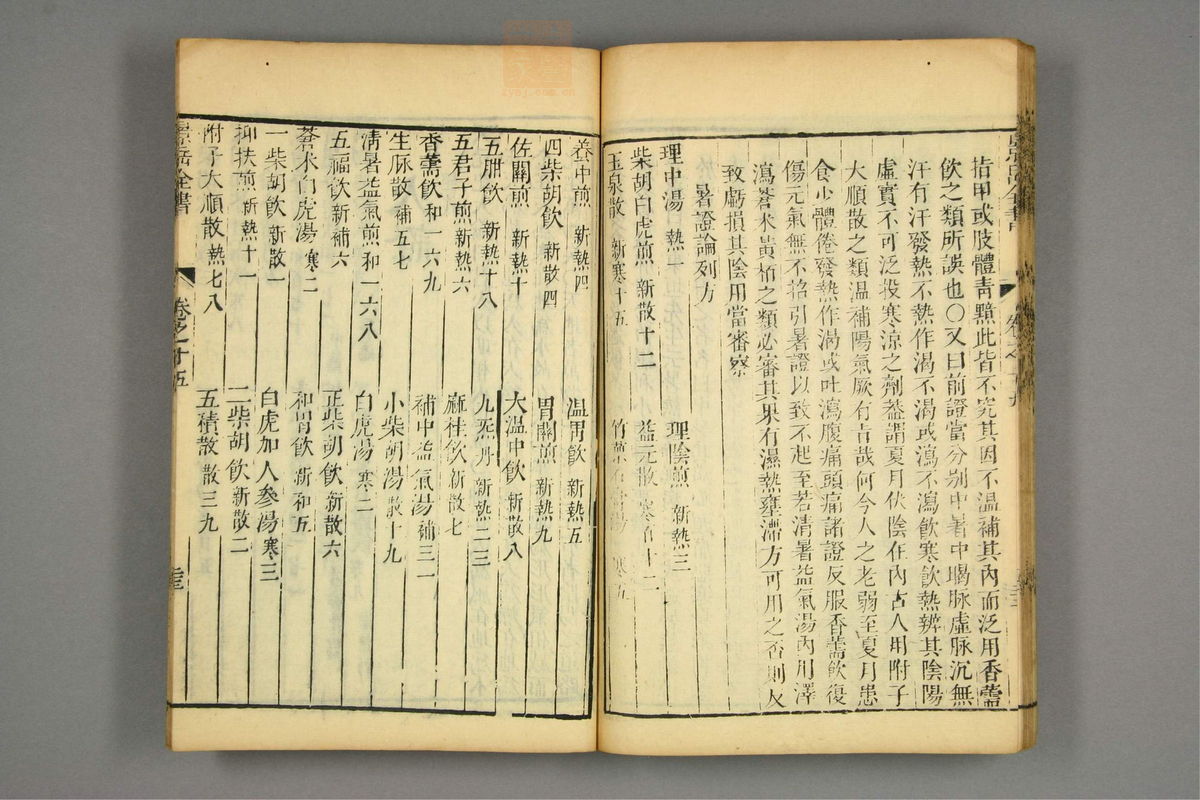 指甲或肢體青黯此皆不究其因不溫補其內而泛用香薷
飲之類所誤也〇又曰前證當分別中暑中暍脉虛脉沉無
汗有汗發熱不熱作渴不渴或瀉不瀉飲寒飲熱辨其陰陽
虛實不可泛投寒涼之劑葢謂夏月伏陰在內古人用附子
大順散之類溫補陽氣厥有旨哉何今人之老弱至夏月患
食少體倦發熱作渴或吐瀉腹痛頭痛諸證反服香薷飲復
傷元氣無不招引暑證以致不起至若清暑益氣湯內用澤
瀉蒼术黃栢之類必審其果有濕熱壅滯方可用之否則反
致虧損其陰用當審察
暑證論列方
理中湯 熱一 理陰煎 新熱三
柴胡白虎煎 新散十二 益元散 寒百十二
玉泉散 新寒十五
養中煎 新熱四 溫胃飲 新熱五
四柴胡飲 新散四 胃關煎 新熱九
佐關煎 新熱十 大溫中飲 新散八
五德飲 新熱十八 九炁丹 新熱二三
五君子煎 新熱六 麻桂飲 新散七
香薷飲 和一六九 補中益氣湯 補三一
生脉散 補五七 小柴胡湯 散十九
清暑益氣煎 和一六八 白虎湯 寒二
五福飲 新補六 正柴胡飲 新散六
蒼术白虎湯 寒二 和胃飲 新和五
一柴胡飲 新散一 白虎加人參湯 寒三
抑扶煎 新熱十一 二柴胡飲 新散二
附子大順散 熱七八 五積散 散三九
景岳全書 卷之十五